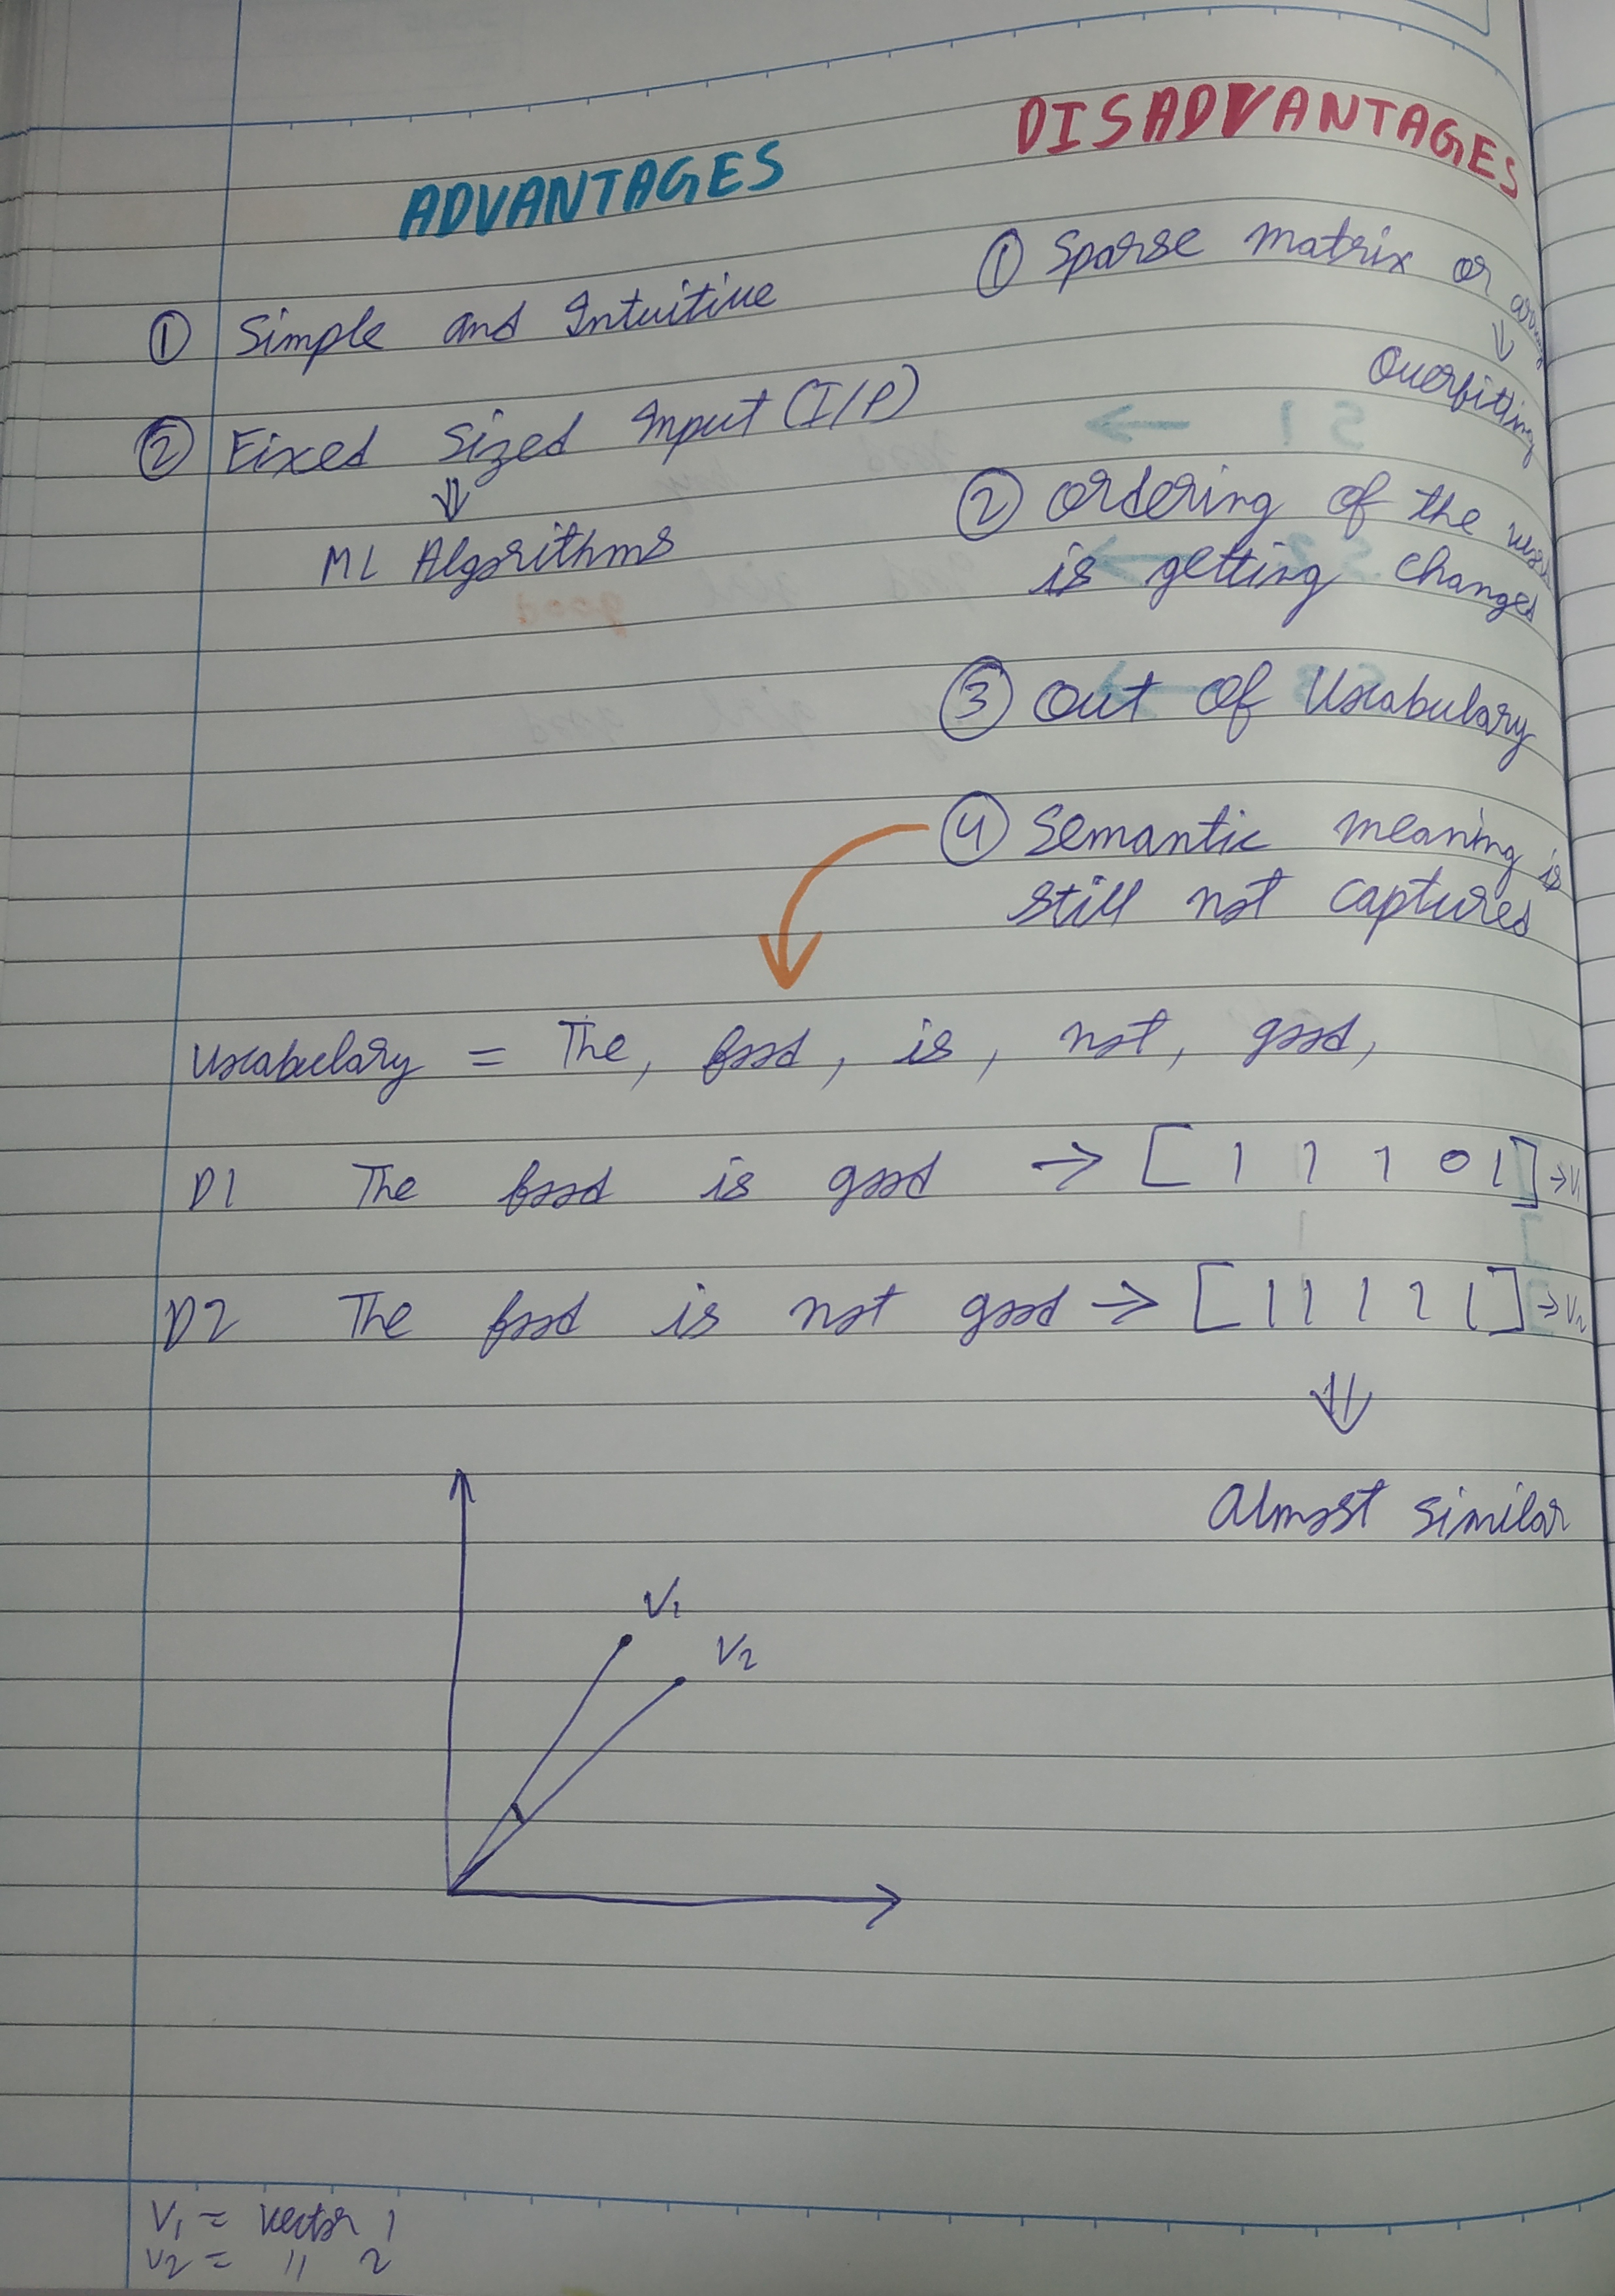 ADVANTAGES
① Simple and Intuitive
② Fixed Sized Input (I/P)
⇓
ML Algorithms
DISADVANTAGES
① Sparse matrix or array
↓
Overfitting
② Ordering of the word
is getting changed
③ Out of Vocabulary
④ Semantic meaning is
still not captured
Vocabulary = The, food, is, not, good,
D1 The food is good → [ 1 1 1 0 1 ] → V1
D2 The food is not good → [ 1 1 1 1 1 ] → V2
⇓
Almost similar
V1
V2
V1 = Vector 1
V2 = 〃 2